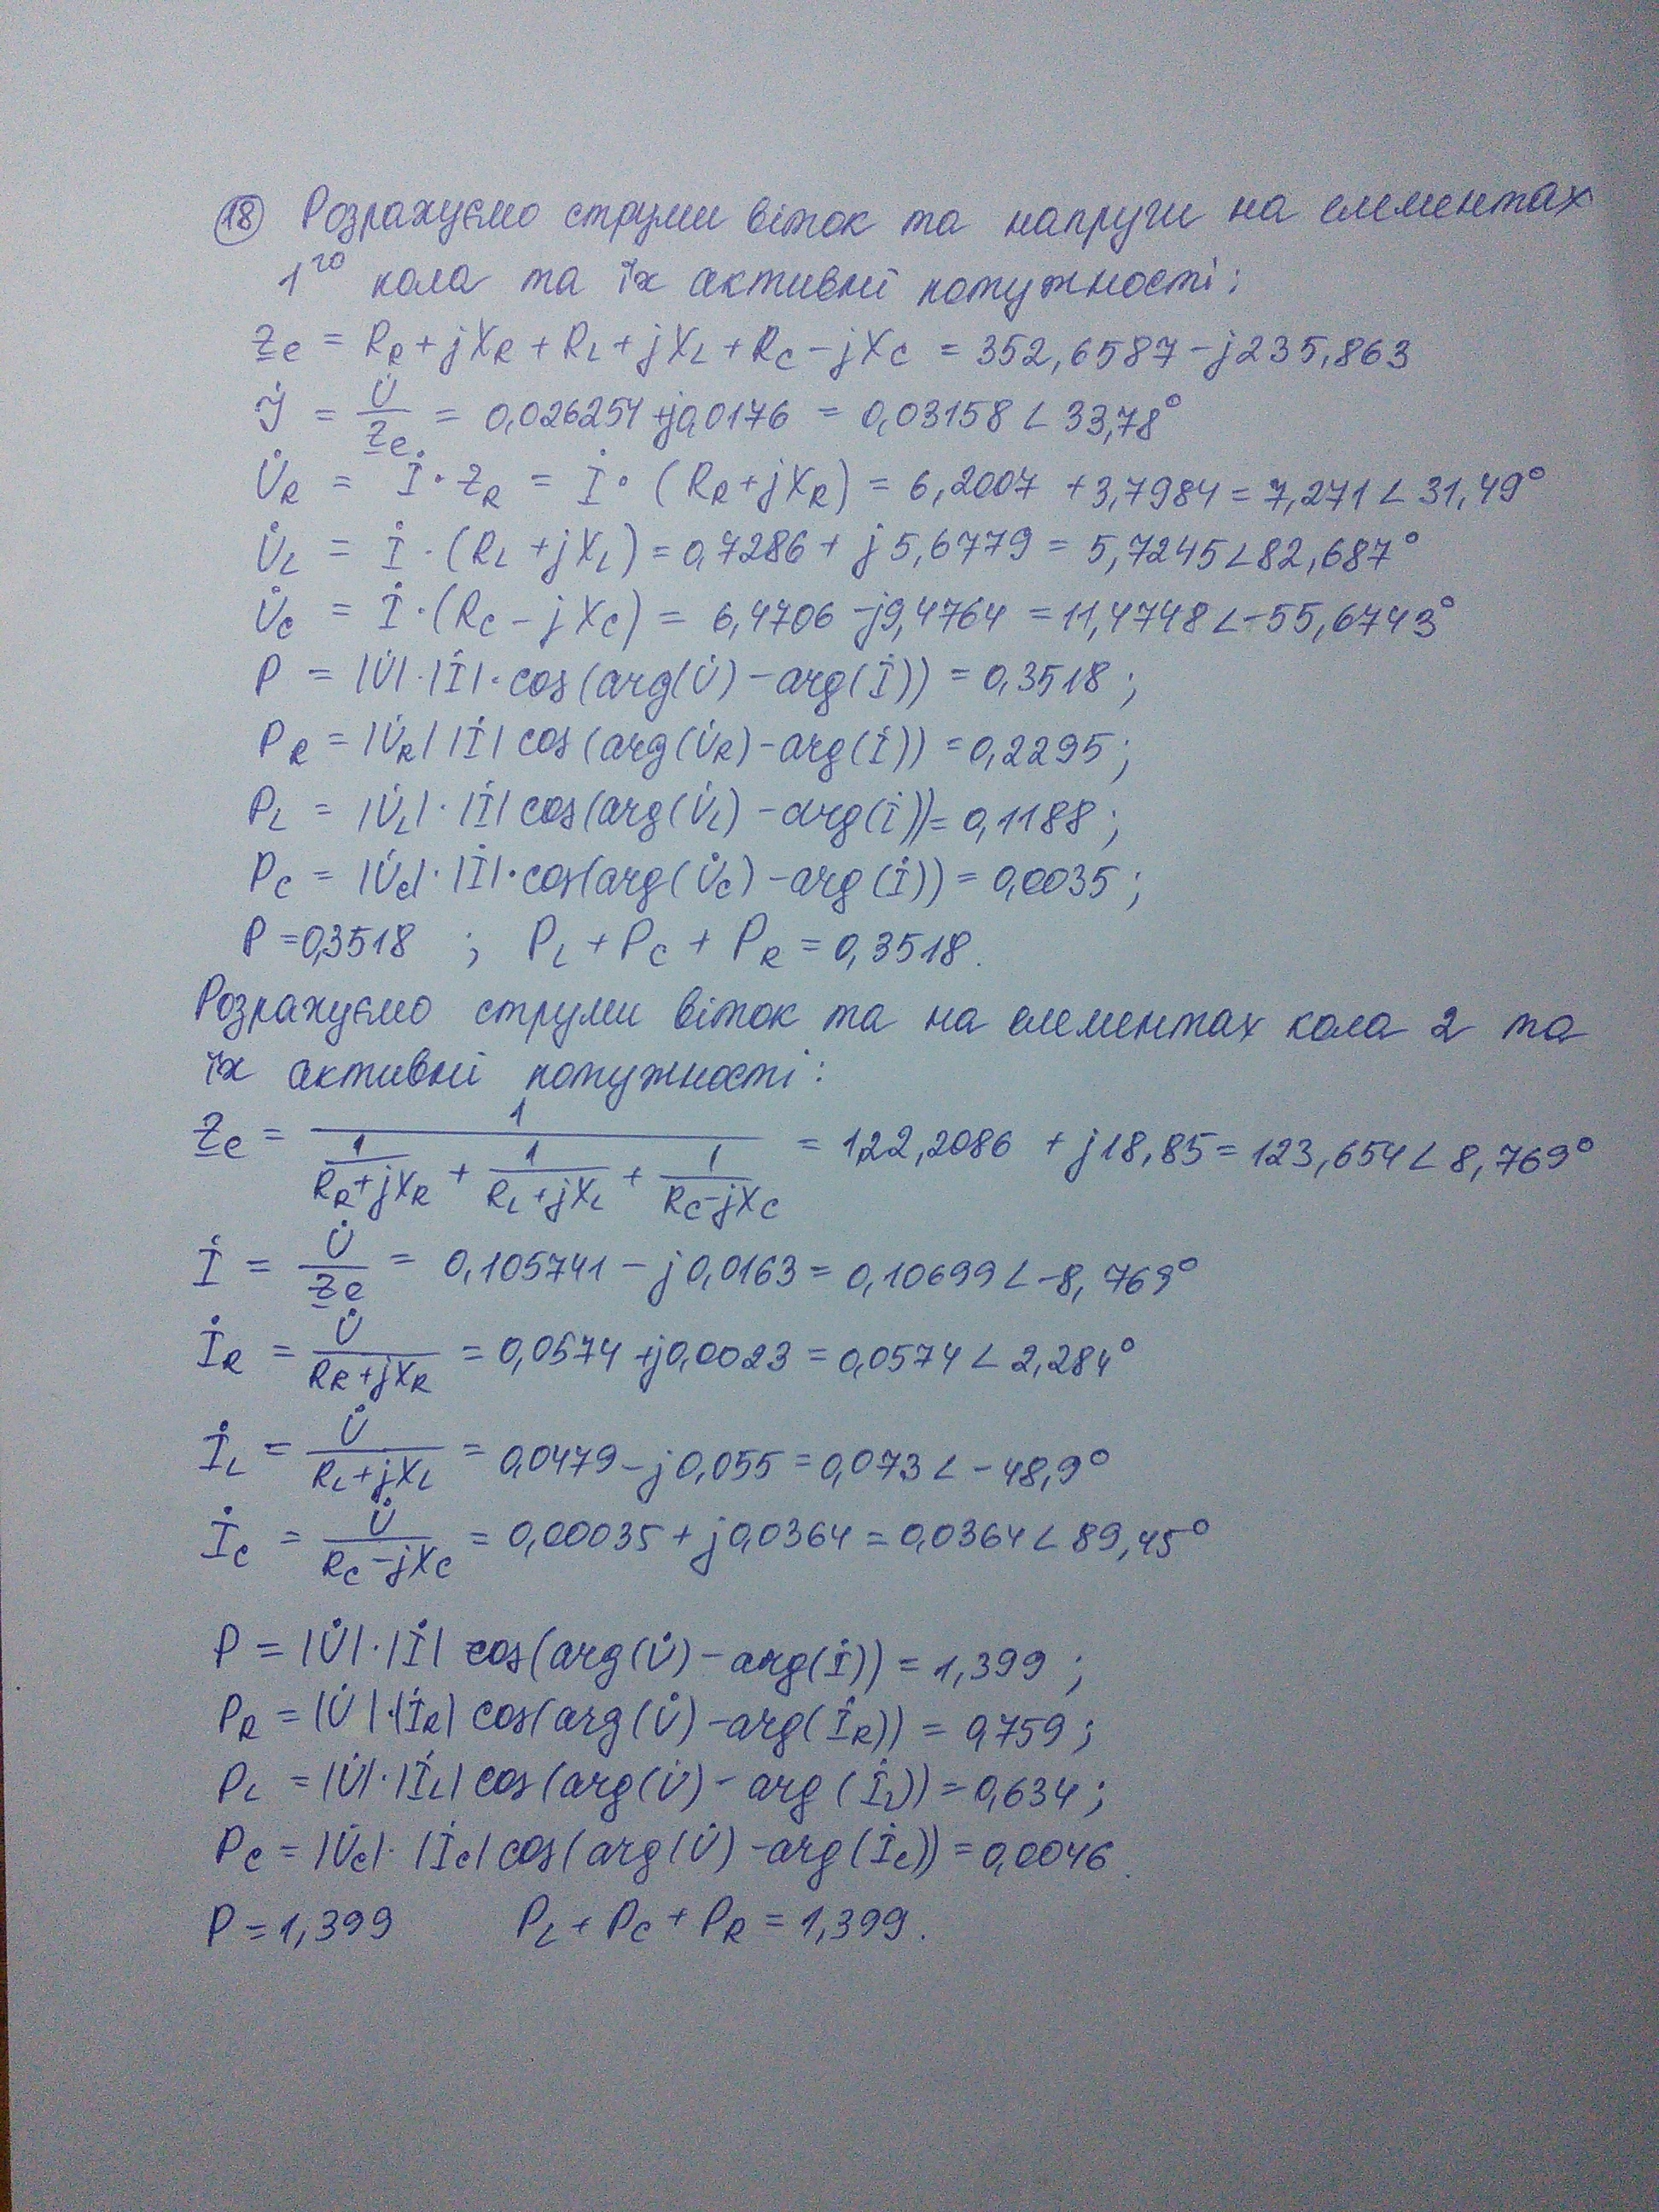 18 Розрахуємо струми віток та напруги на елементах
1го кола та їх активні потужності:
Zе = RR + jXR + RL + jXL + RC - jXC = 352,6587 - j235,863
İ = U̇/Zе = 0,026254 + j0,0176 = 0,03158 ∠ 33,78°
U̇R = İ · ZR = İ · (RR + jXR) = 6,2007 + 3,7984 = 7,271 ∠ 31,49°
U̇L = İ · (RL + jXL) = 0,7286 + j5,6779 = 5,7245 ∠ 82,687°
U̇C = İ · (RC - jXC) = 6,4706 - j9,4764 = 11,4748 ∠ -55,6743°
P = |U̇| · |İ| · cos(arg(U̇) - arg(İ)) = 0,3518 ;
PR = |U̇R| |İ| cos(arg(U̇R) - arg(İ)) = 0,2295 ;
PL = |U̇L| · |İ| cos(arg(U̇L) - arg(İ)) = 0,1188 ;
PC = |U̇C| · |İ| · cos(arg(U̇C) - arg(İ)) = 0,0035 ;
P = 0,3518 ; PL + PC + PR = 0,3518.
Розрахуємо струми віток та на елементах кола 2 та
їх активні потужності:
Zе = 1/(1/(RR + jXR) + 1/(RL + jXL) + 1/(RC - jXC)) = 122,2086 + j18,85 = 123,654 ∠ 8,769°
İ = U̇/Zе = 0,105741 - j0,0163 = 0,10699 ∠ -8,769°
İR = U̇/(RR + jXR) = 0,0574 + j0,0023 = 0,0574 ∠ 2,284°
İL = U̇/(RL + jXL) = 0,0479 - j0,055 = 0,073 ∠ -48,9°
İC = U̇/(RC - jXC) = 0,00035 + j0,0364 = 0,0364 ∠ 89,45°
P = |U̇| · |İ| cos(arg(U̇) - arg(İ)) = 1,399 ;
PR = |U̇| · |İR| cos(arg(U̇) - arg(İR)) = 0,759 ;
PL = |U̇| · |İL| cos(arg(U̇) - arg(İL)) = 0,634 ;
PC = |U̇C| · |İC| cos(arg(U̇) - arg(İC)) = 0,0046.
P = 1,399 PL + PC + PR = 1,399.